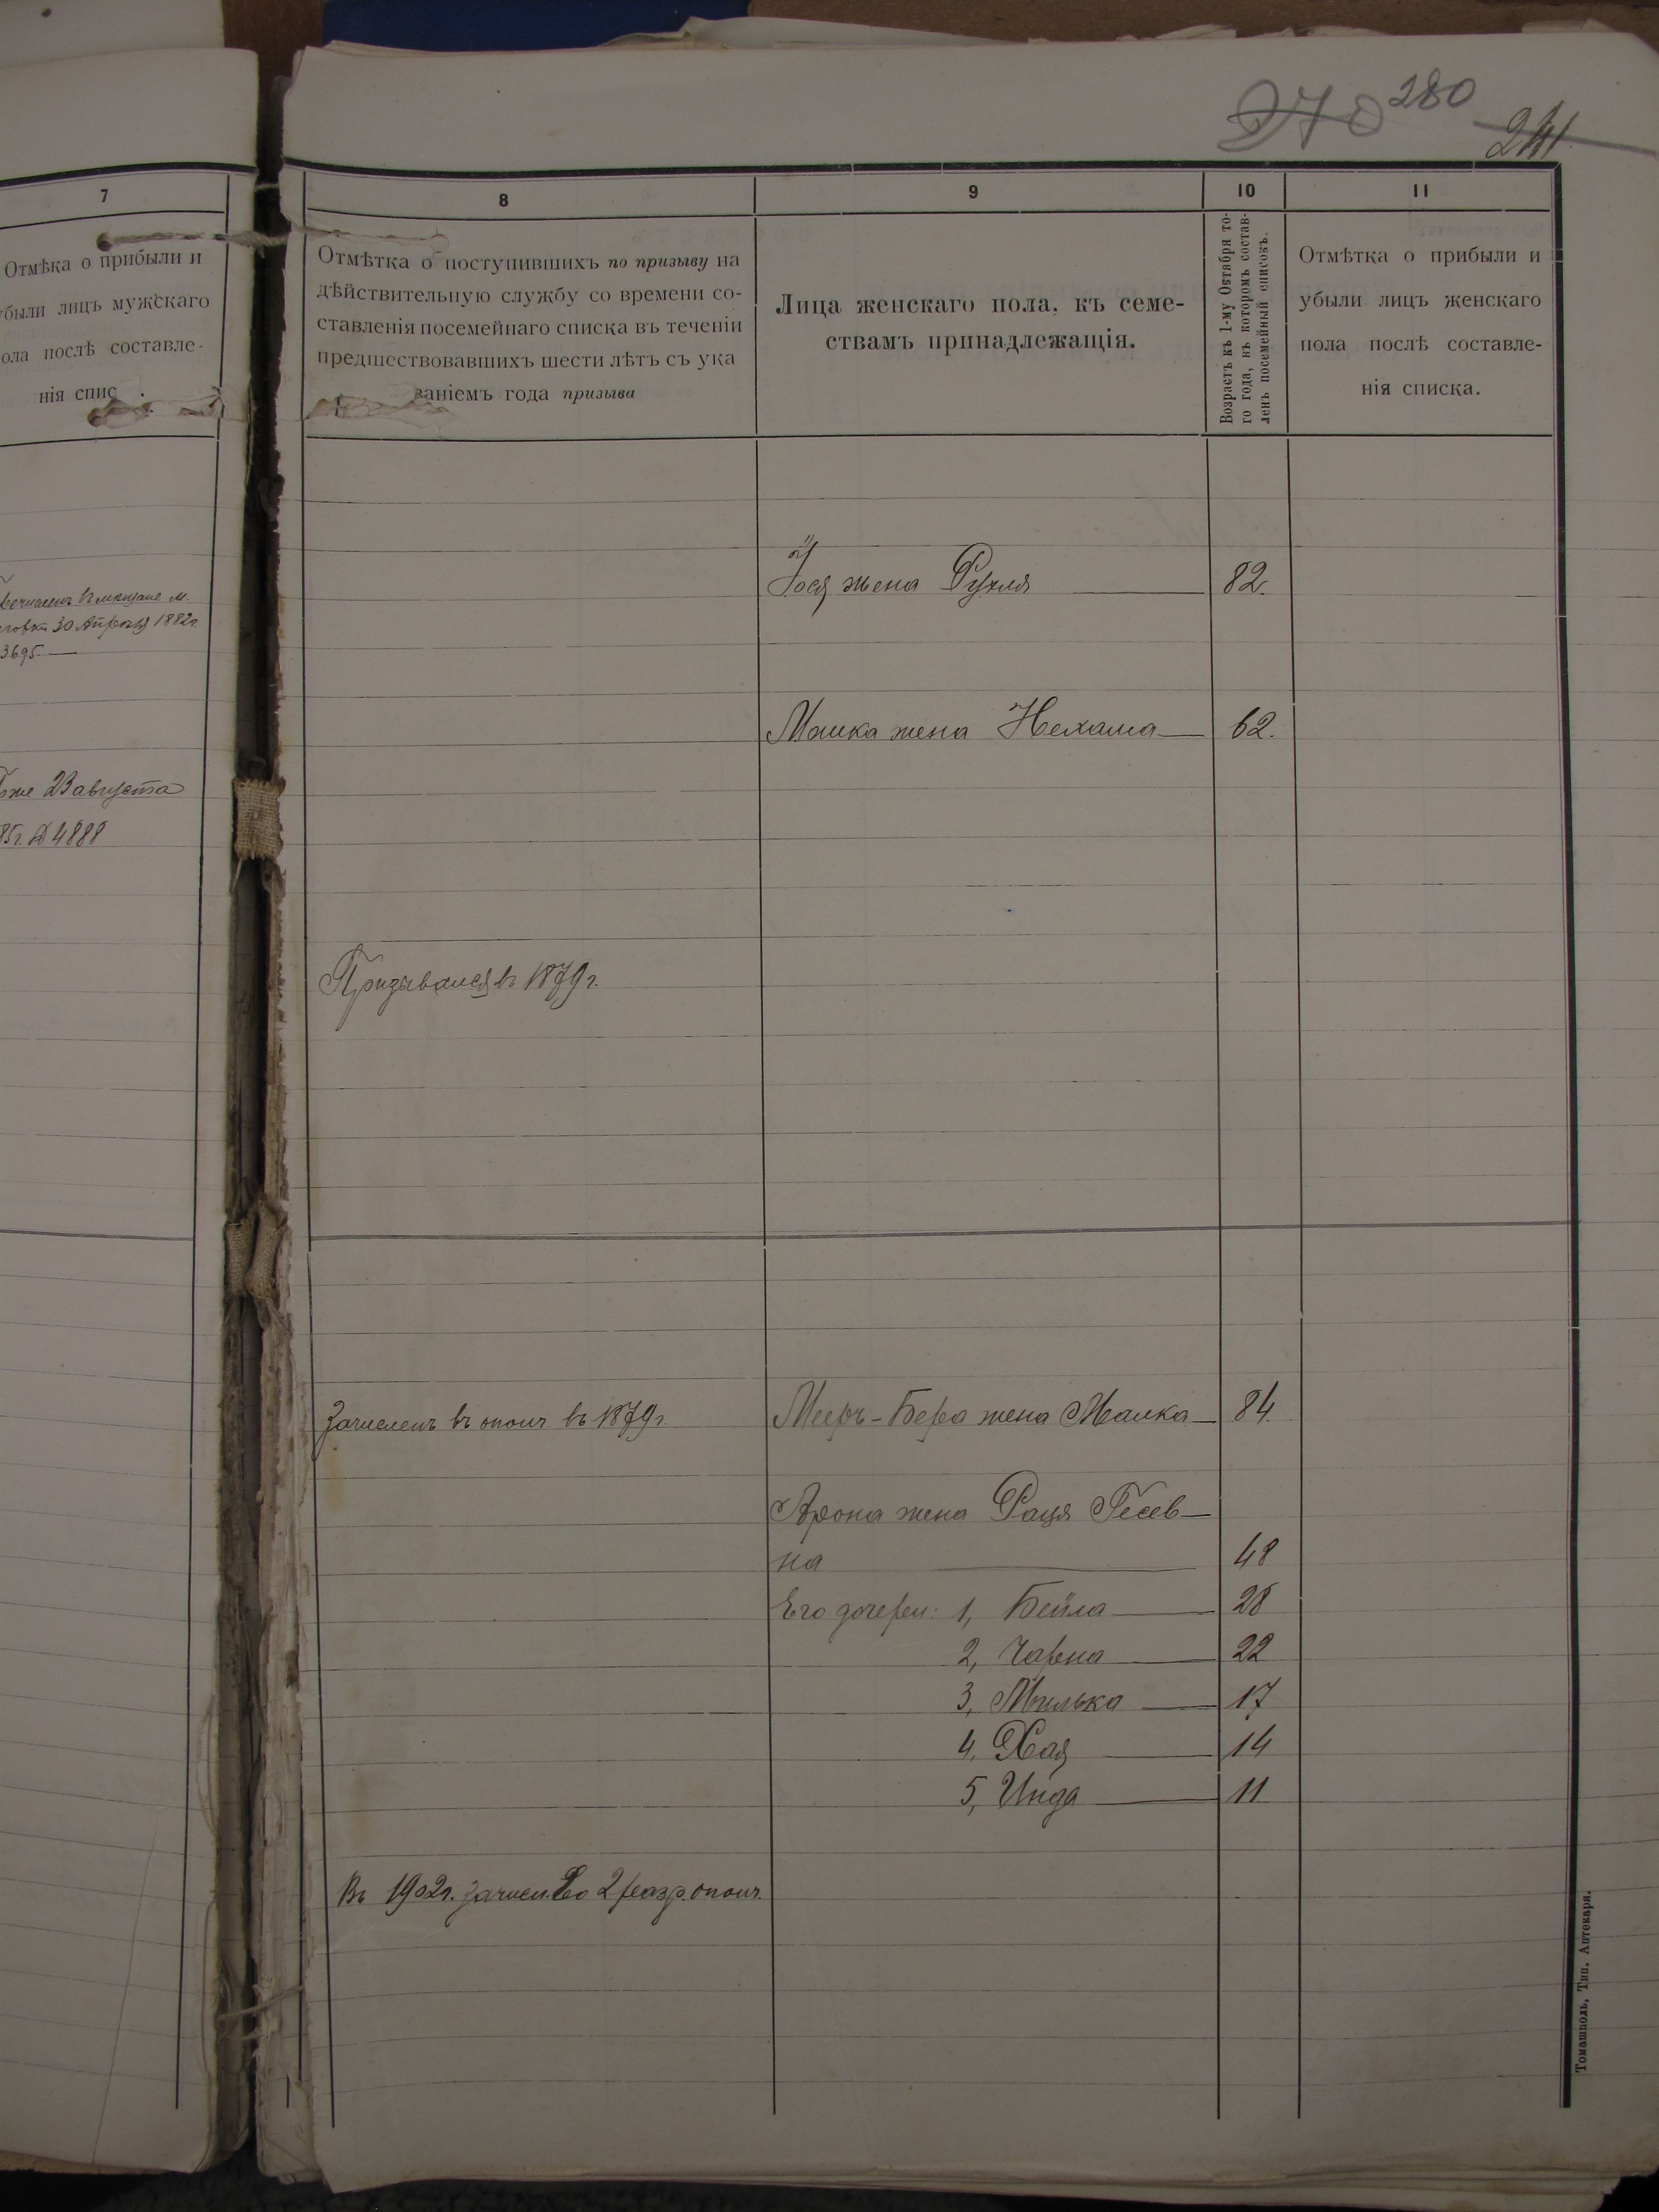 270 280
241
7
Отмѣка о прибыли и
убыли лицъ мужскаго
пола послѣ составле-
нія спис
30 Апрѣля 1882г
3695
тоже 23 августа
85г. № 4888
8
Отмѣтка о поступившихъ по призыву на
дѣйствительную службу со времени со-
ставленія посемейнаго списка въ теченіи
предшествовавшихъ шести лѣтъ съ ука
заніемъ года призыва
9
Лица женскаго пола, къ семе-
ствамъ принадлежащія.
10
Возрастъ къ 1-му Октября то-
го года, въ которомъ состав-
ленъ посемейный списокъ.
11
Отмѣтка о прибыли и
убыли лицъ женскаго
пола послѣ составле-
нія списка.
жена Рухля 82.
жена Нехама 62.
Призывался въ 1879г.
Зачисленъ въ ополч въ 1879г
Мееръ-Бера жена Малка 84.
Арона жена Рася Гесев-
на 48
Его дочери: 1, Бейла 28
2, Чарна 22
3, Милька 17
4, Хая 14
5, Инда 11
Въ 1902г. зачисл. во 2 разр. ополч.
Томашполь, Тип. Аптекаря.